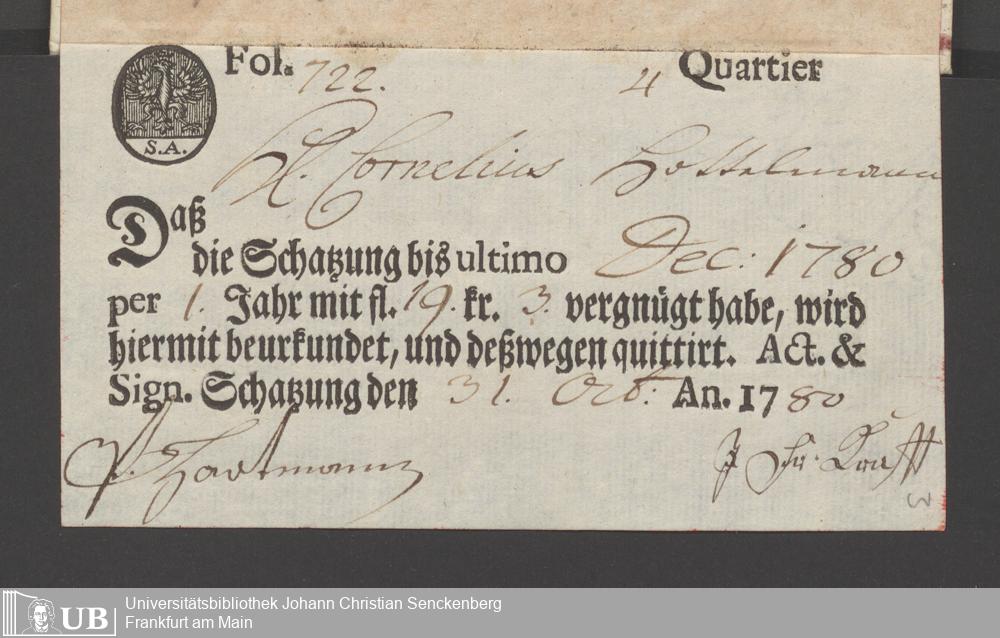 Fol. 722. 4 Quartier
S.A.
H. Cornelius Hottelmann
Daß
die Schatzung bis ultimo Dec: 1780
per 1. Jahr mit fl. 19. kr. 3. vergnügt habe, wird
hiermit beurkundet, und deßwegen quittirt. Act. &
Sign. Schatzung den 31. Oct. An. 1780
Hartmann J Fr. Krafft
3
UB
Universitätsbibliothek Johann Christian Senckenberg
Frankfurt am Main